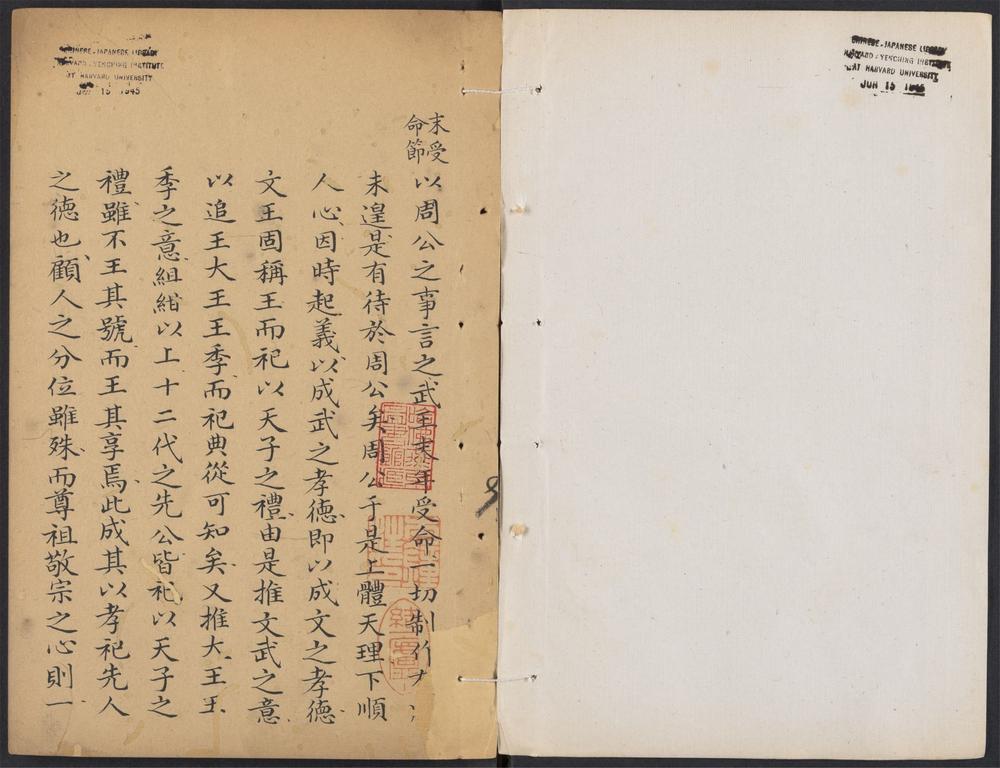 末受
命節
以周公之事言之武王末年受命一切制作
未遑是有待於周公矣周公于是上體天理下順
人心因時起義以成武之孝德即以成文之孝德
文王固稱王而祀以天子之禮由是推文武之意
以追王大王王季而祀典從可知矣又推大王王
季之意組紺以上十二代之先公皆祀以天子之
禮雖不王其號而王其享焉此成其以孝祀先人
之德也顧人之分位雖殊而尊祖敬宗之心則一
CHINESE-JAPANESE LIBRARY
HARVARD-YENCHING INSTITUTE
AT HARVARD UNIVERSITY
JUN 15 1945
CHINESE-JAPANESE LIBRARY
HARVARD-YENCHING INSTITUTE
AT HARVARD UNIVERSITY
JUN 15 1945